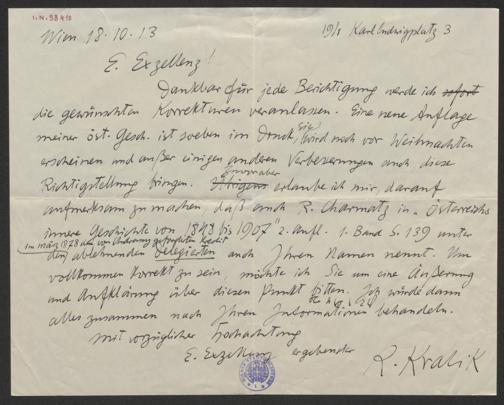 I.N. 98410
Wien 18.10.13
19/1 Karl Ludwigplatz 3
E. Exzellenz!
Dankbar für jede Berichtigung werde ich sofort
die gewünschten Korrekturen veranlassen. Eine neue Auflage
meiner öst. Gesch. ist soeben im Druck Sie wird noch vor Weihnachten
erscheinen und außer einigen anderen Verbesserungen auch diese
Richtigstellung bringen. erlaube ich mir, darauf
aufmerksam zu machen daß auch R. Charmatz in "Österreichs
innere Geschichte von 1848 bis 1907" 2. Aufl. 1. Band S. 139 unter
im März 1878 den von Andrassy geforderten Kredit
den ablehnenden Delegierten auch Ihren Namen nennt. Um
vollkommen korrekt zu sein, möchte ich Sie um eine Äußerung
und Aufklärung über diesen Punkt bitten. Ich würde dann
alles zusammen nach Ihren Informationen behandeln.
Mit vorzüglicher Hochachtung
E. Exzellenz ergebenster
R. Kralik